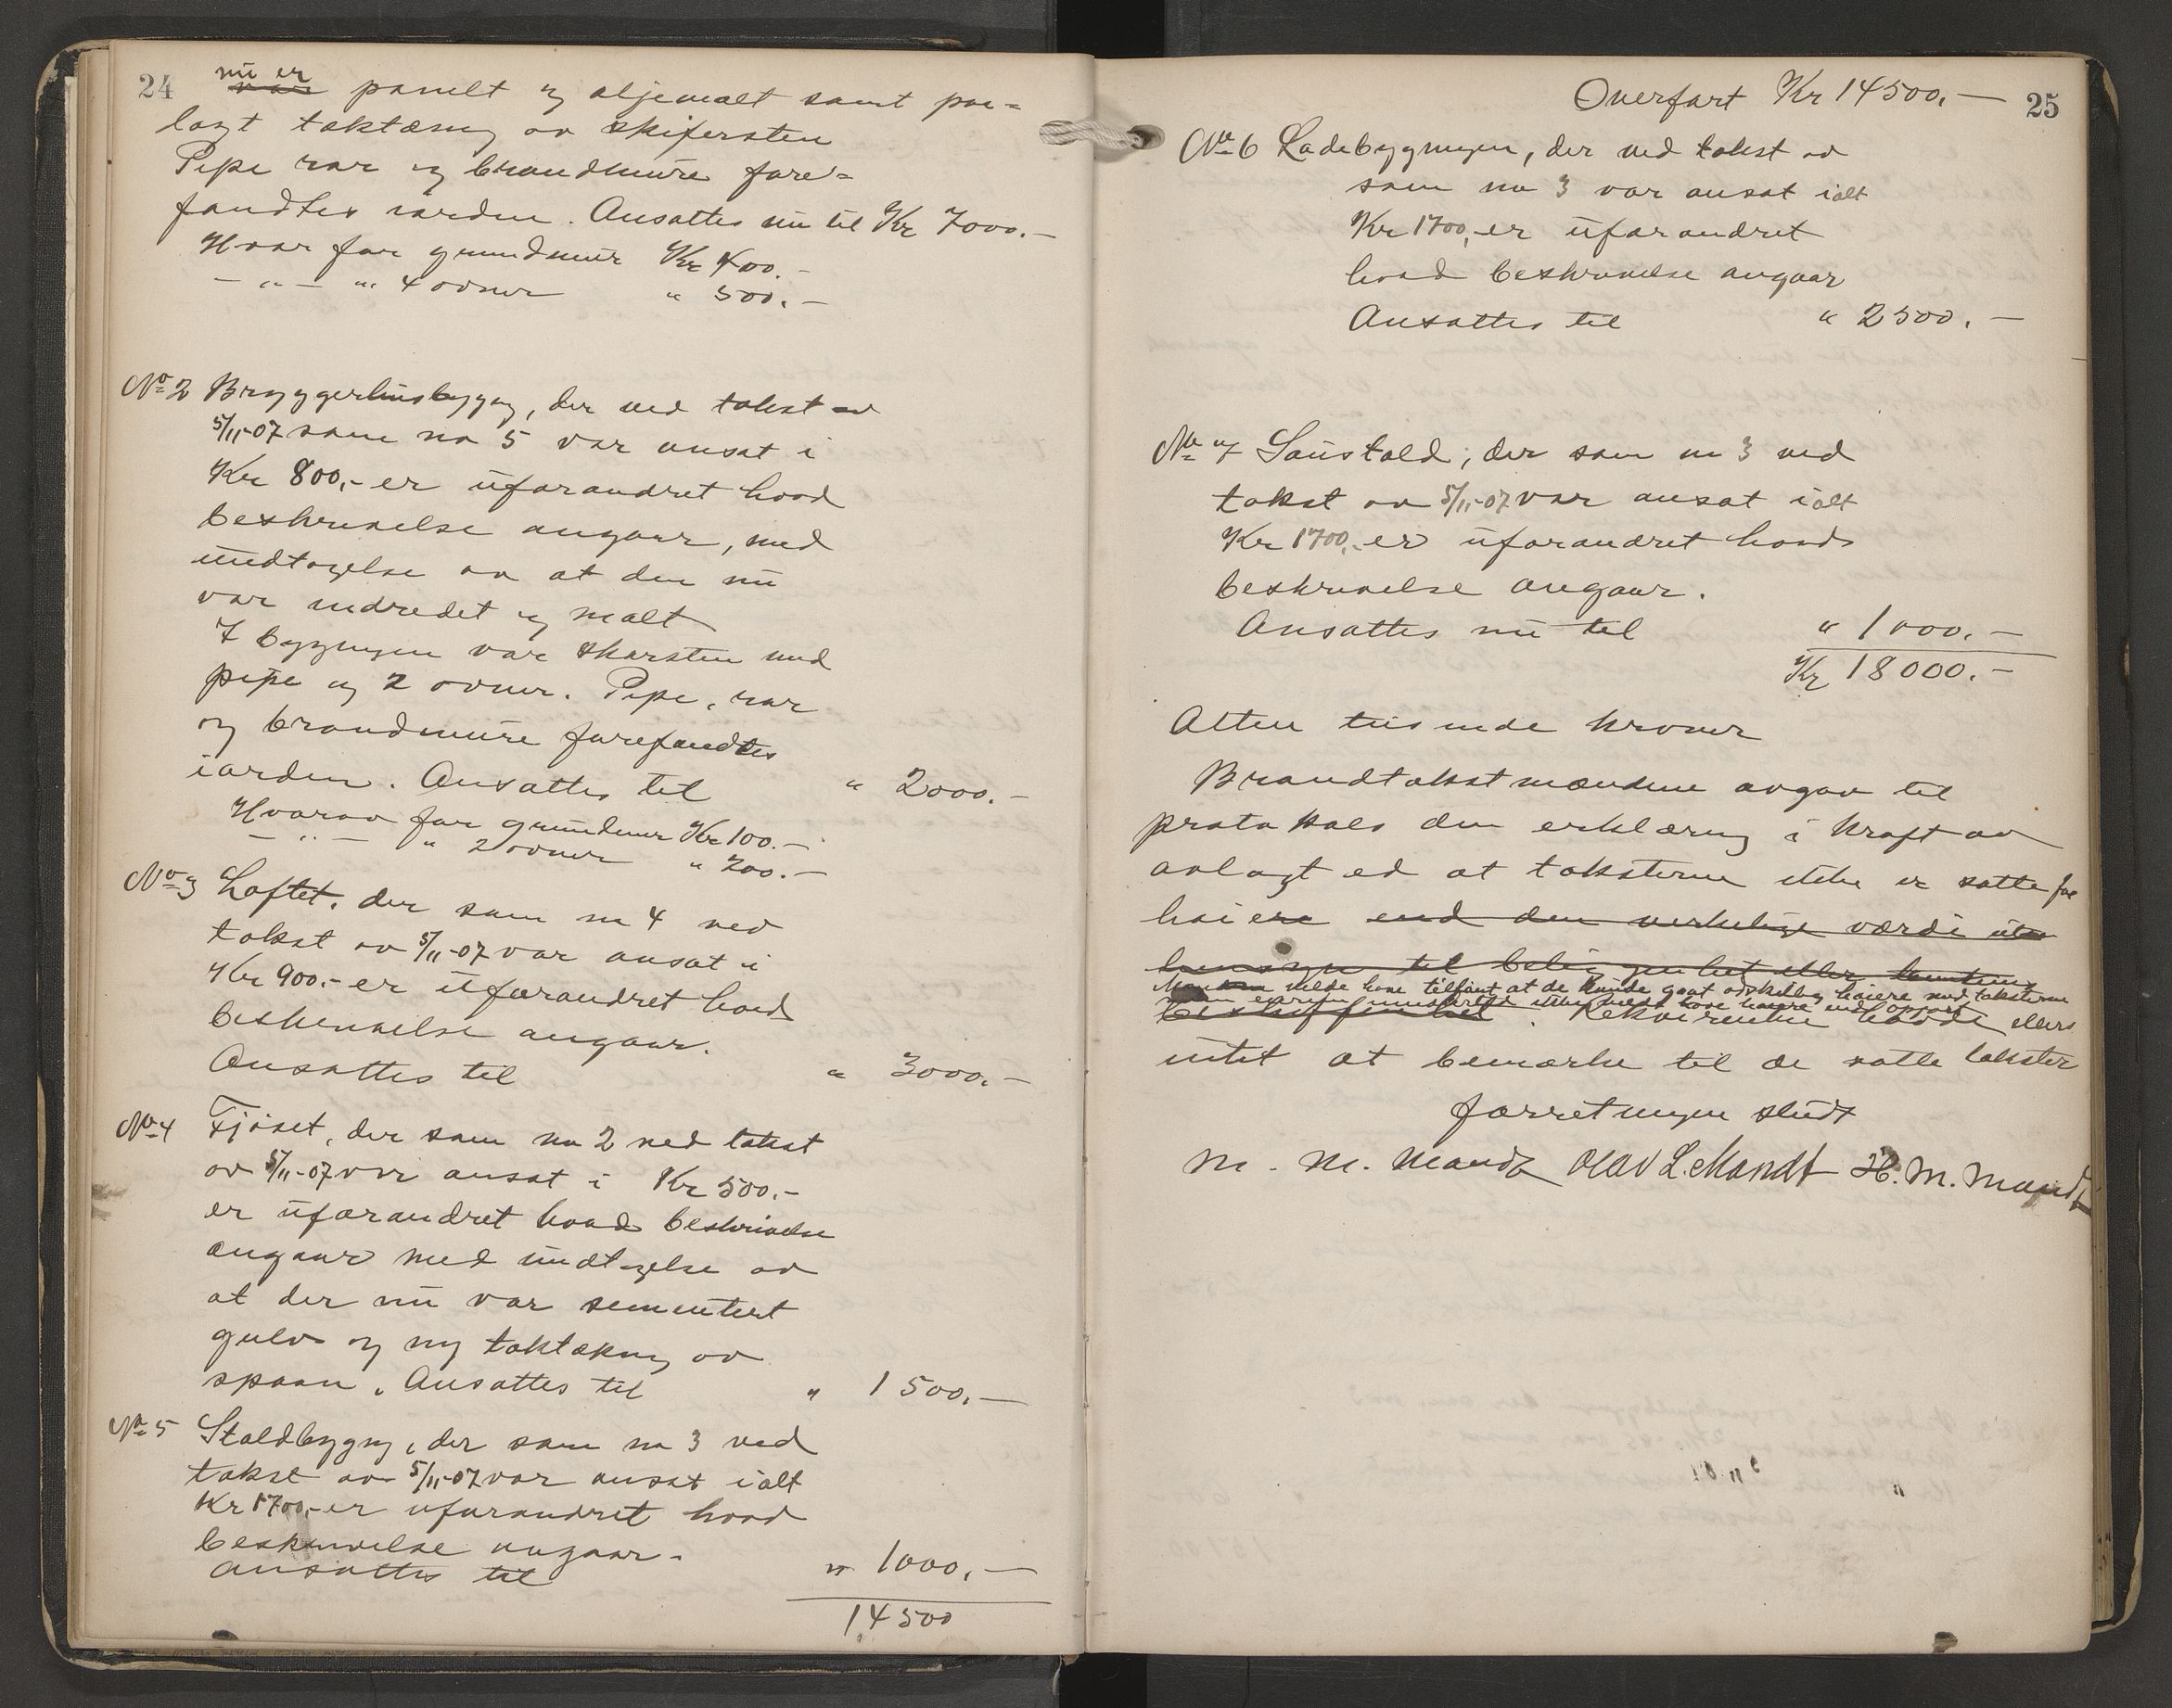 24
nu er
var panelt og oljemalt samt paa=
lagt taktækning av skifersten
Pipe rør og brandmure fore=
fandtes iorden. Ansattes nu til Kr 7000.-
Hvorav for grundmur Kr 400.-
- " - " 4 ovner " 500.-
No 2 Bryggerhusbygng, der ved takst av
5/11-07 som no 5 var ansat i
Kr 800,- er uforandret hvad
beskrivelse angaar, med
undtagelse av at den nu
var indredet og malt
I bygningen var skorsten med
pipe og 2 ovner. Pipe, rør
og brandmure forefandtes
iorden. Ansattes til " 2000.-
Hvorav for grundmur Kr 100.-
- " - " 2 ovner " 200.-
No 3 Loftet, der som no 4 ved
takst av 5/11-07 var ansat i
Kr 900.- er uforandret hvad
beskrivelse angaar.
Ansattes til " 3000.-
No 4 Fjöset, der som no 2 ved takst
av 5/11-07 var ansat i Kr 500.-
er uforandret hvad beskrivelse
angaar med undtagelse av
at der nu var sementert
gulv og ny taktækning av
spaan. Ansattes til " 1500.-
No 5 Staldbygng, der som no 3 ved
takst av 5/11-07 var ansat ialt
Kr 1700,- er uforandret hvad
beskrivelse angaar.
ansattes til " 1000.-
14500
Overført Kr 14500.- 25
No 6 Ladebygningen, der ved takst av
som no 3 var ansat ialt
Kr 1700,- er uforandret
hvad beskrivelse angaar
Ansattes til " 2500.-
No 7 Saustald, der som no 3 ved
takst av 5/11-07 var ansat ialt
Kr 1700,- er uforandret hvad
beskrivelse angaar.
Ansattes nu til " 1000.-
Kr 18000.-
Atten tusinde kroner
Brandtakstmændene avgav til
protokols den erklæring i kraft av
avlagt ed at taksterne ikke er satte for
høiere end den virkelige værdi uten
hensyn til beliggenhet eller tomtens
vilde have tilføiet at de kunde gaat adskillig høiere med taksterne
beskaffenhet. Rekvirenten havde ellers
intet at bemærke til de satte takster
Forretningen slut
M. M. Mandt Olav L. Mandt H. M. Mandt